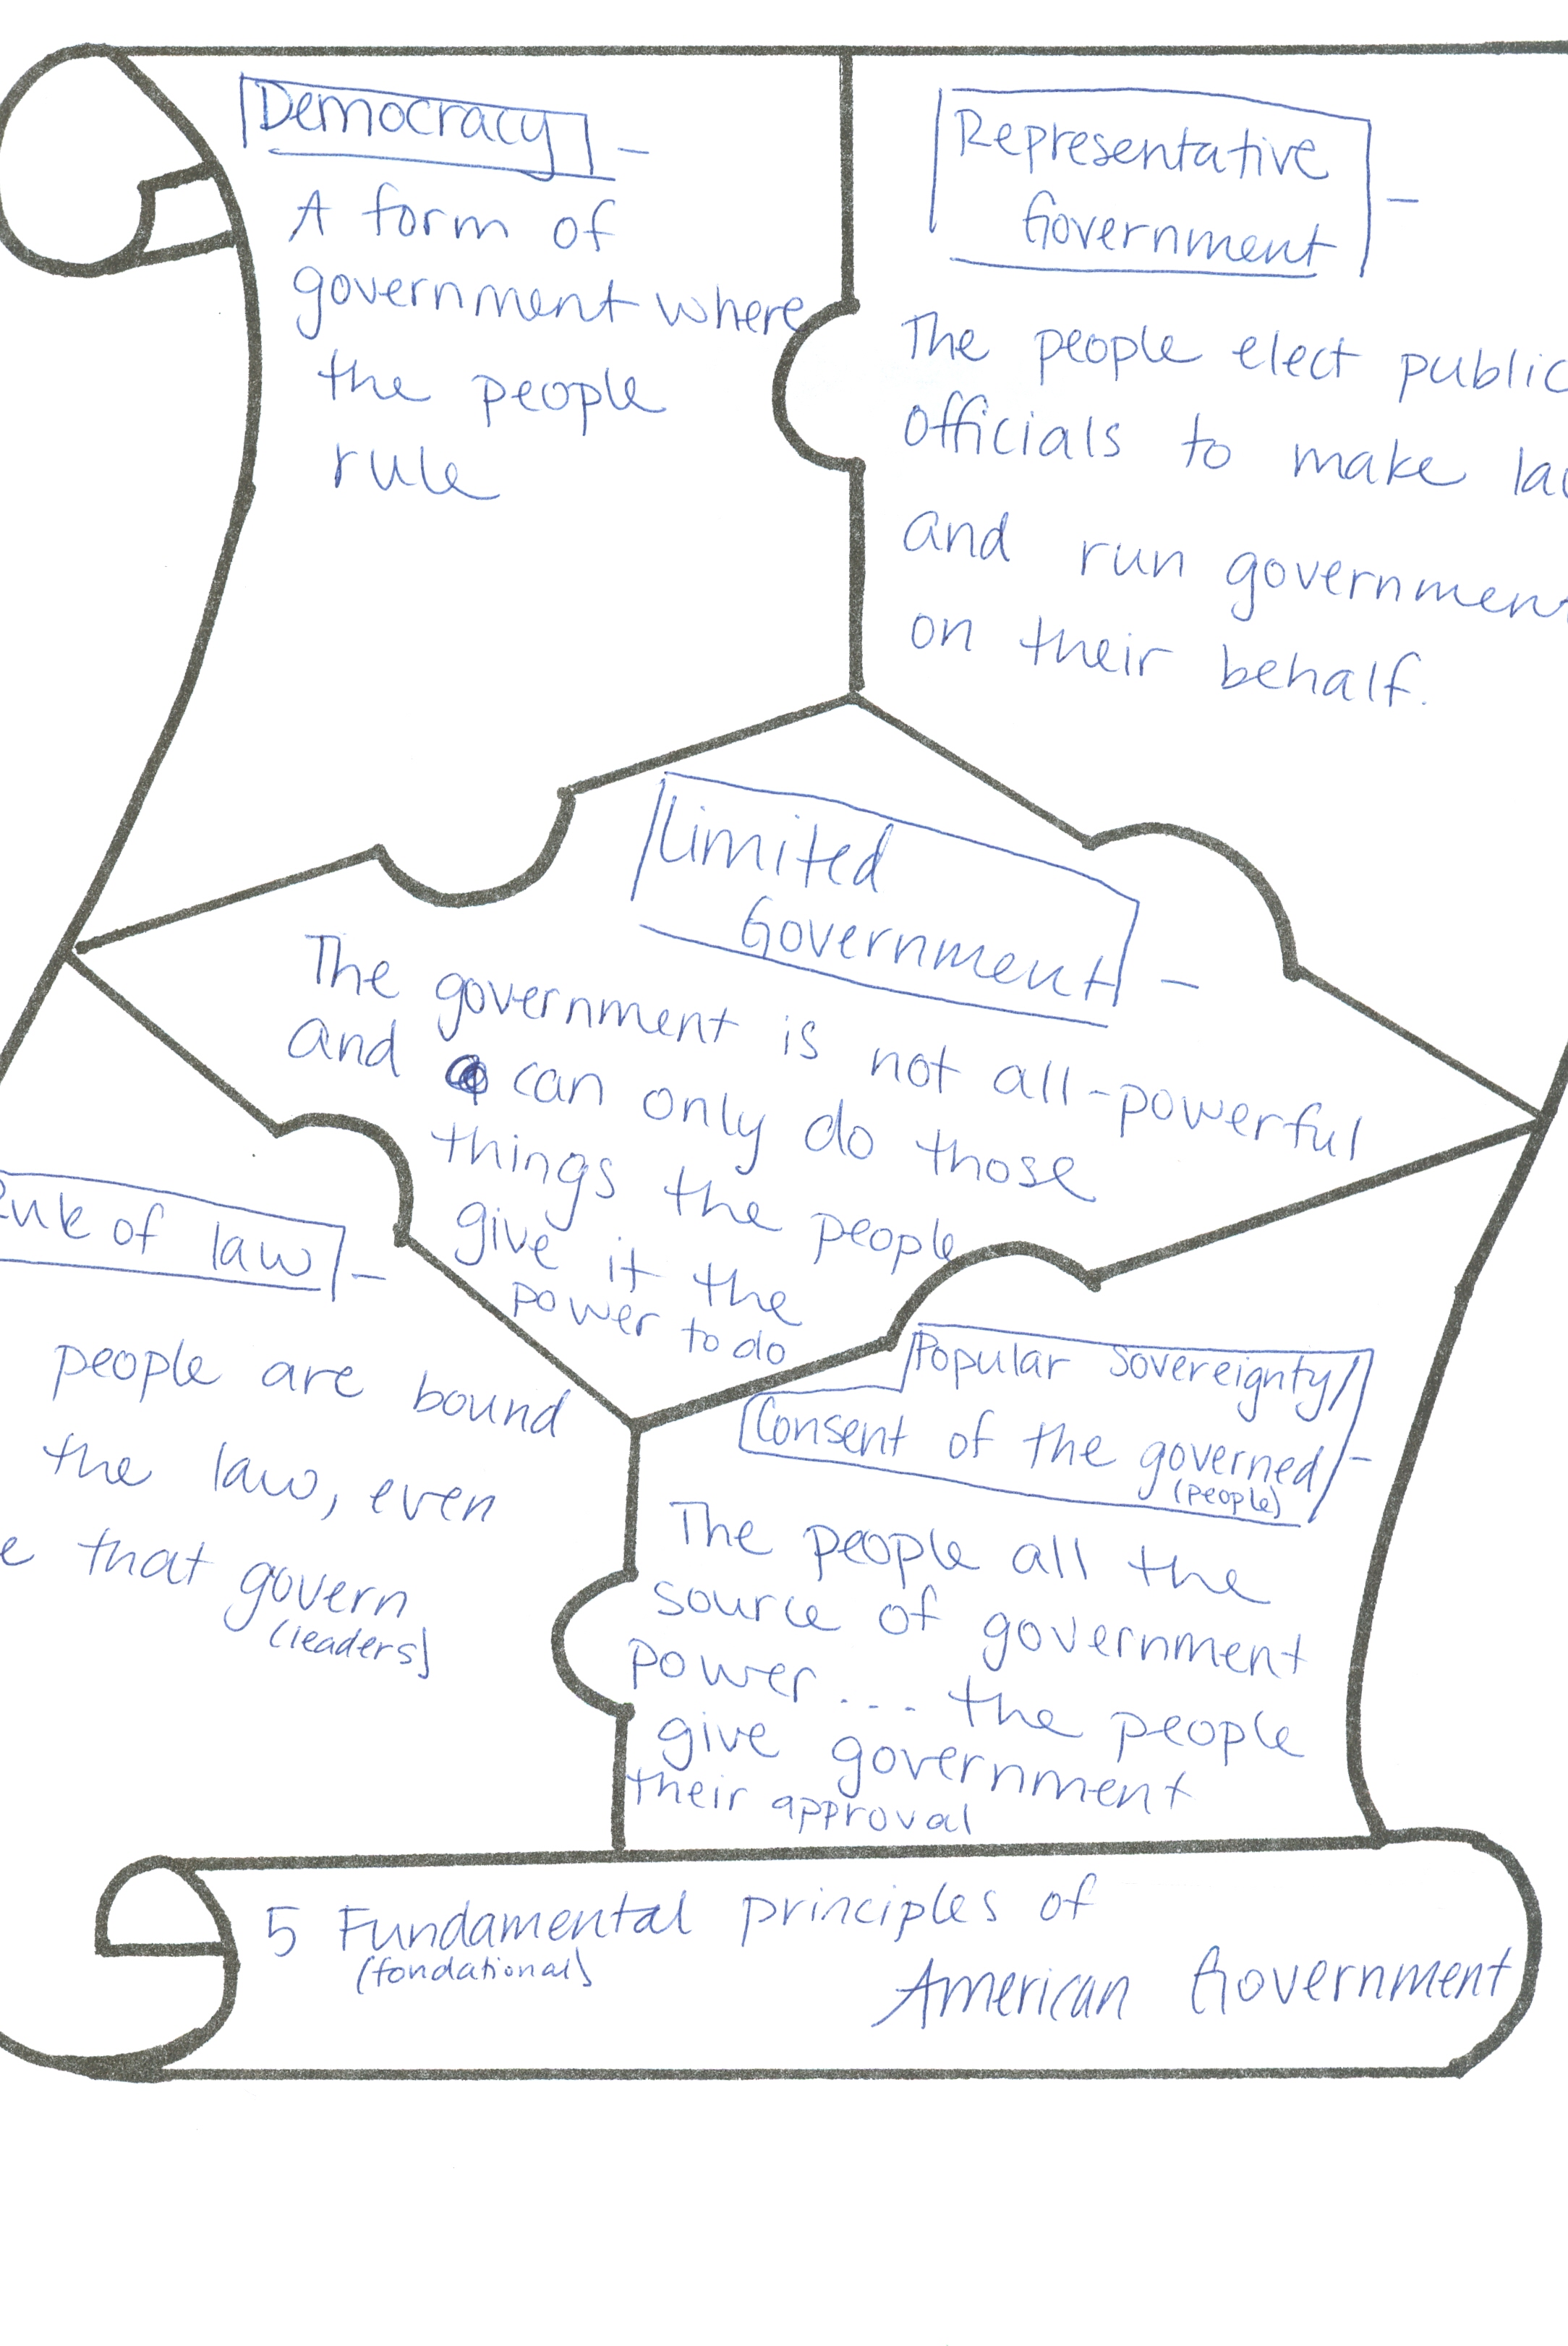 Democracy -
A form of
government where
the people
rule
Representative
Government -
The people elect public
officials to make
and run government
on their behalf.
Limited
Government -
The government is not all-powerful
and can only do those
things the people
give it the
power to do
Rule of law -
people are bound
the law, even
that govern
(leaders)
Popular Sovereignty/
Consent of the governed -
(people)
The people all the
source of government
power... the people
give government
their approval
5 Fundamental principles of
(fondational)
American Government